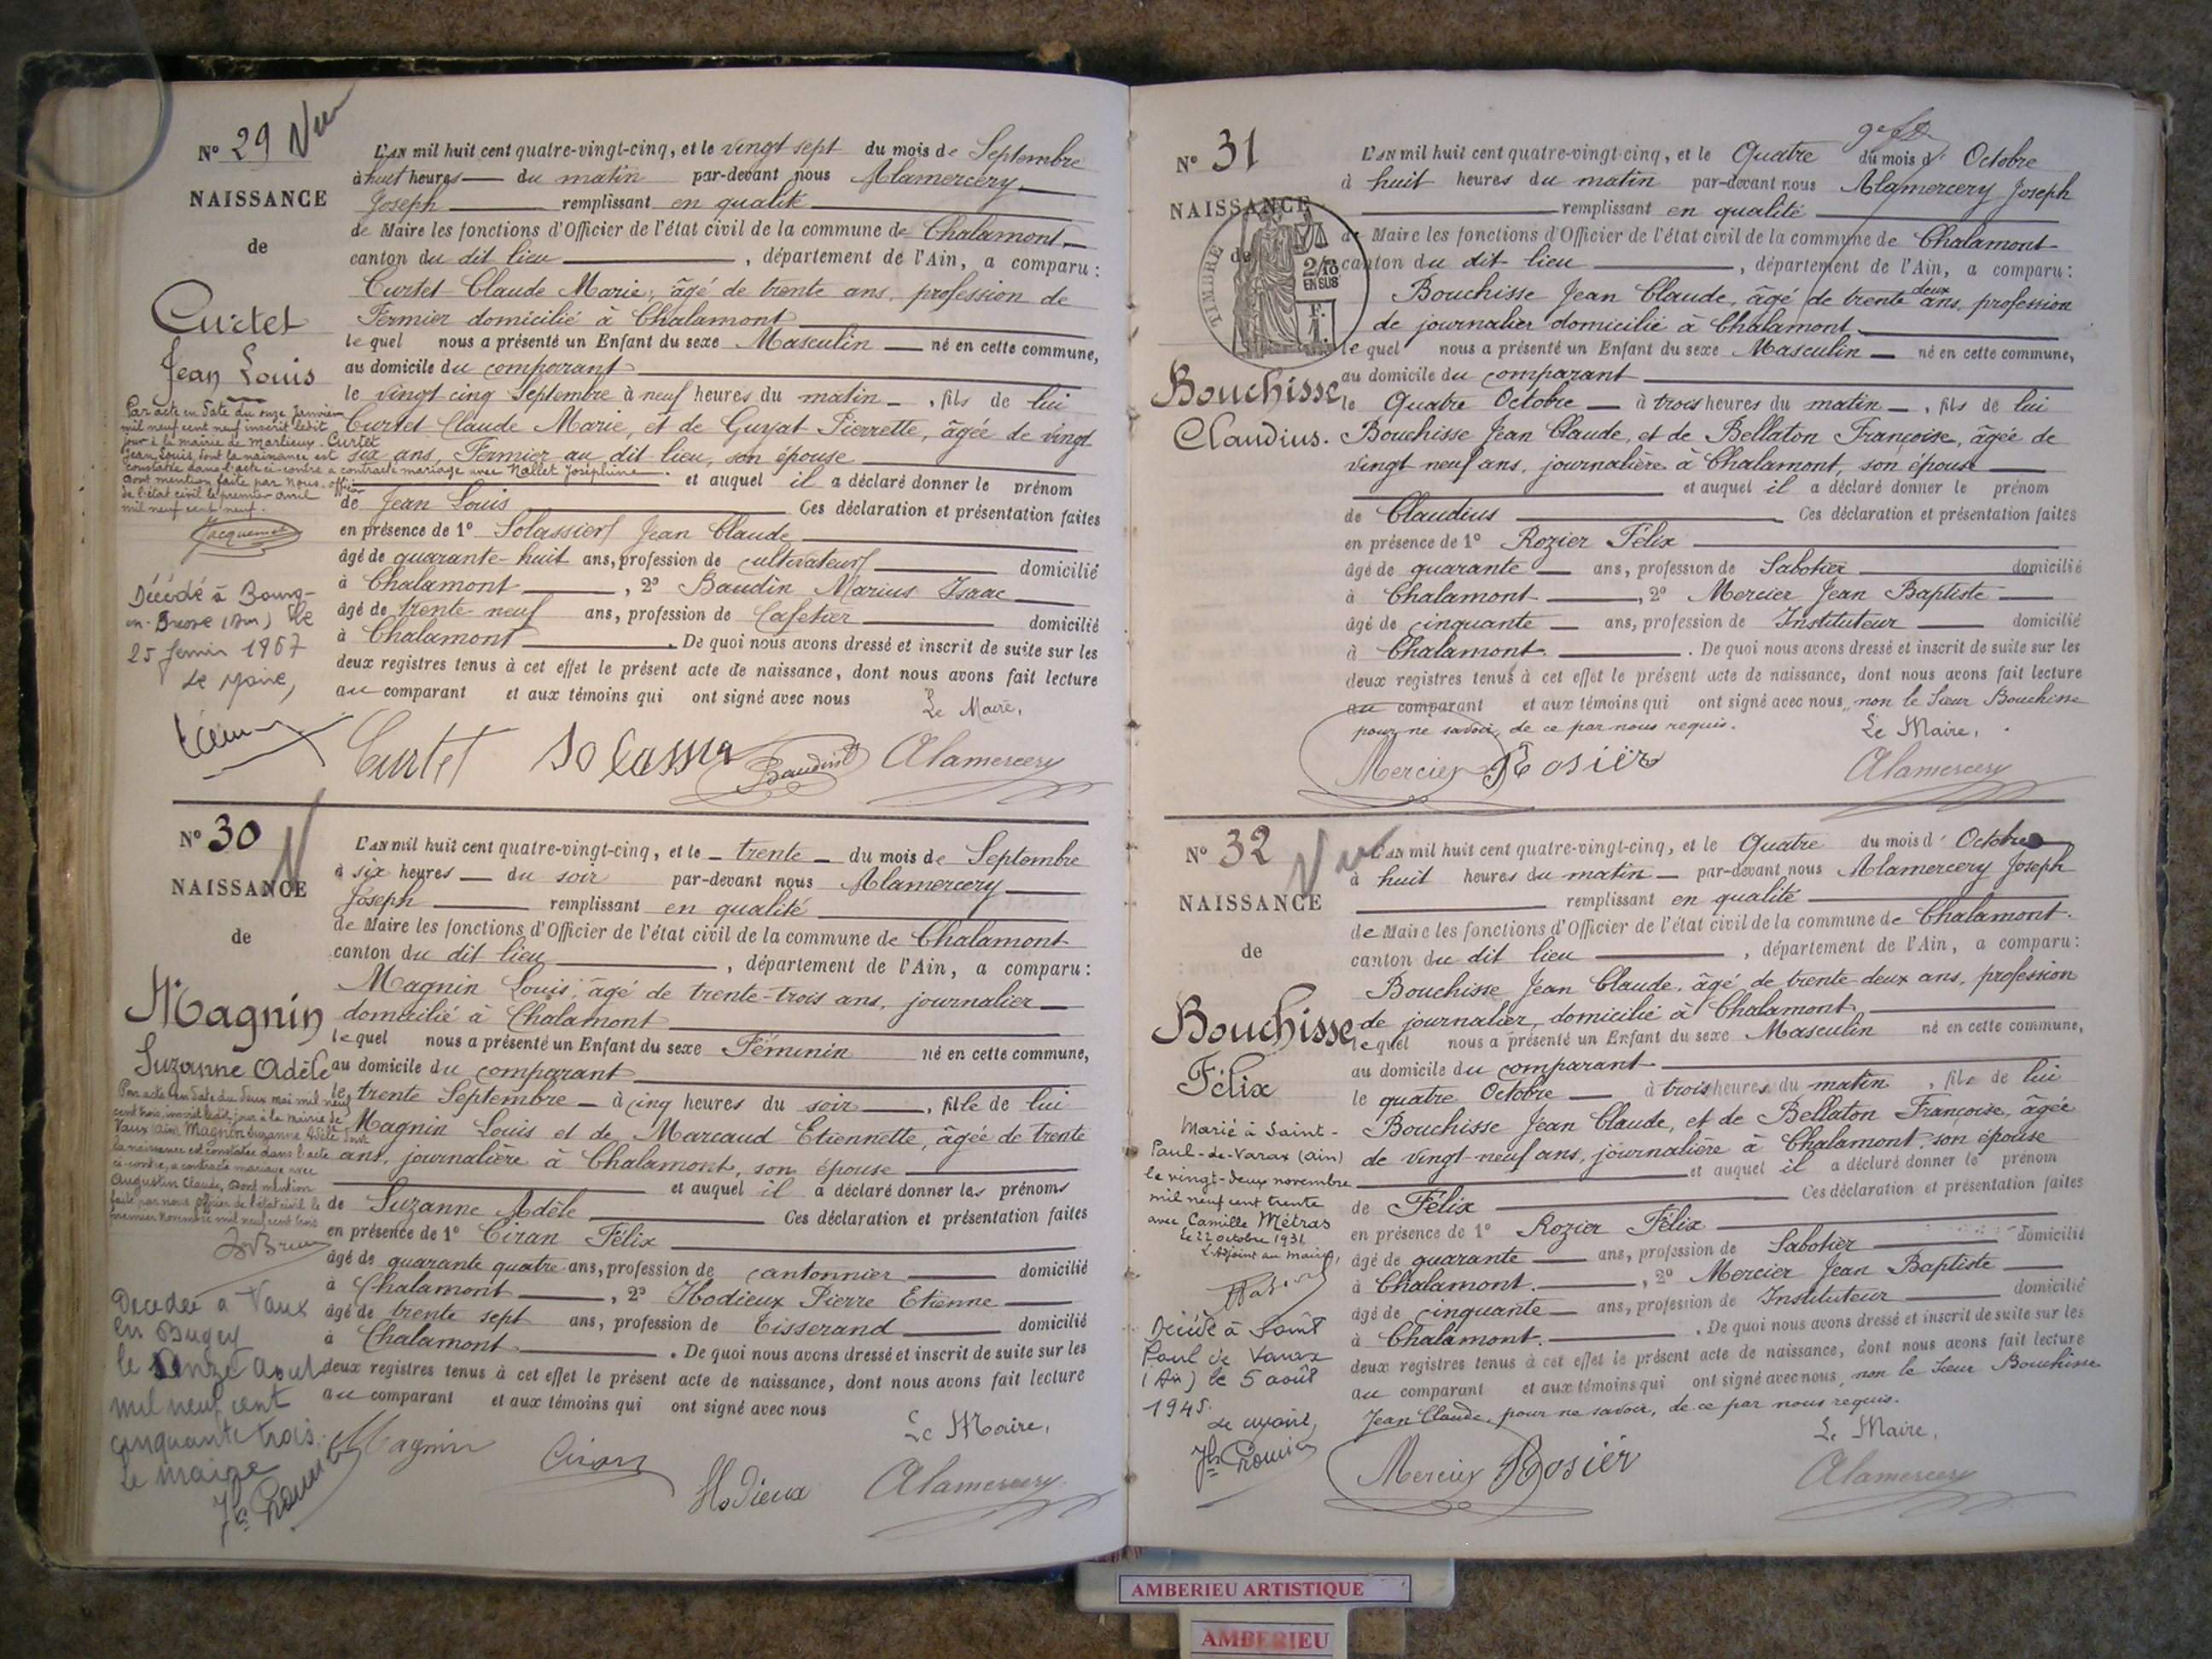 Nº 29 Vu
NAISSANCE
de
Curtet
Jean Louis
Par acte en date du onze Janvier
mil neuf cent neuf inscrit ledit
jour à la mairie de Marlieux. Curtet
Jean Louis, dont la naissance est
constatée dans l'acte ci-contre a contracté mariage avec Nallet Joséphine.
dont mention faite par nous officier
de l'état civil le premier avril
mil neuf cent neuf.
Jacquemet
Décédé à Bourg-
en-Bresse (Ain) le
25 1967
Le Maire,
L'AN mil huit cent quatre-vingt-cinq, et le vingt sept du mois de Septembre
à huit heures du matin par-devant nous Alamercery
Joseph remplissant en qualité
de Maire les fonctions d'Officier de l'état civil de la commune de Chalamont
canton du dit lieu , département de l'Ain, a comparu :
Curtet Claude Marie, âgé de trente ans, profession de
Fermier domicilié à Chalamont
lequel nous a présenté un Enfant du sexe Masculin né en cette commune,
au domicile du comparant
le vingt cinq Septembre à neuf heures du matin , fils de lui
Curtet Claude Marie, et de Guyat Pierrette, âgée de vingt
six ans, Fermier au dit lieu, son épouse
et auquel il a déclaré donner le prénom
de Jean Louis Ces déclaration et présentation faites
en présence de 1º Solassier Jean Claude
âgé de quarante-huit ans, profession de cultivateur domicilié
à Chalamont , 2º Baudin Marius Isaac
âgé de trente neuf ans, profession de Cafetier domicilié
à Chalamont . De quoi nous avons dressé et inscrit de suite sur les
deux registres tenus à cet effet le présent acte de naissance, dont nous avons fait lecture
au comparant et aux témoins qui ont signé avec nous
Le Maire,
Curtet Solassier Baudin Alamercery
Nº 30
NAISSANCE
de
Magnin
Suzanne Adèle
Par acte en date du deux mai mil neuf
cent trois, inscrit ledit jour à la mairie de
Vaux (Ain) Magnin Suzanne Adèle dont
la naissance est constatée dans l'acte
ci-contre, a contracté mariage avec
Augustin Claude, dont mention
faite par nous officier de l'état civil le
premier novembre mil neuf cent trois
Décédée à Vaux
en Bugey
le onze août
mil neuf cent
cinquante trois.
Le maire
L'AN mil huit cent quatre-vingt-cinq, et le trente du mois de Septembre
à six heures du soir par-devant nous Alamercery
Joseph remplissant en qualité
de Maire les fonctions d'Officier de l'état civil de la commune de Chalamont
canton du dit lieu , département de l'Ain, a comparu :
Magnin Louis, âgé de trente-trois ans, journalier
domicilié à Chalamont
lequel nous a présenté un Enfant du sexe Féminin né en cette commune,
au domicile du comparant
le trente Septembre à cinq heures du soir , fille de lui
Magnin Louis et de Marcaud Etiennette, âgée de trente
ans, journalière à Chalamont, son épouse
et auquel il a déclaré donner les prénoms
de Suzanne Adèle Ces déclaration et présentation faites
en présence de 1º Ciran Félix
âgé de quarante quatre ans, profession de cantonnier domicilié
à Chalamont , 2º Hodieux Pierre Etienne
âgé de trente sept ans, profession de Tisserand domicilié
à Chalamont . De quoi nous avons dressé et inscrit de suite sur les
deux registres tenus à cet effet le présent acte de naissance, dont nous avons fait lecture
au comparant et aux témoins qui ont signé avec nous
Le Maire,
Magnin Ciran Hodieux Alamercery
Nº 31
NAISSANCE
de
TIMBRE
2/10
EN SUS
F.
1.
Bouchisse
Claudius.
L'AN mil huit cent quatre-vingt-cinq, et le Quatre du mois d' Octobre
à huit heures du matin par-devant nous Alamercery Joseph
remplissant en qualité
de Maire les fonctions d'Officier de l'état civil de la commune de Chalamont
canton du dit lieu , département de l'Ain, a comparu :
Bouchisse Jean Claude, âgé de trente deux ans, profession
de journalier domicilié à Chalamont
lequel nous a présenté un Enfant du sexe Masculin né en cette commune,
au domicile du comparant
le Quatre Octobre à trois heures du matin , fils de lui
Bouchisse Jean Claude, et de Bellaton Françoise, âgée de
vingt neuf ans, journalière à Chalamont, son épouse
et auquel il a déclaré donner le prénom
de Claudius Ces déclaration et présentation faites
en présence de 1º Rozier Félix
âgé de quarante ans, profession de Sabotier domicilié
à Chalamont , 2º Mercier Jean Baptiste
âgé de cinquante ans, profession de Instituteur domicilié
à Chalamont. . De quoi nous avons dressé et inscrit de suite sur les
deux registres tenus à cet effet le présent acte de naissance, dont nous avons fait lecture
au comparant et aux témoins qui ont signé avec nous, non le Sieur Bouchisse
pour ne savoir, de ce par nous requis.
Le Maire,
Mercier Rosier Alamercery
Nº 32 Vu
NAISSANCE
de
Bouchisse
Félix
Marié à Saint-
Paul-de-Varax (Ain)
le vingt-deux novembre
mil neuf cent trente
avec Camille Métras
le 22 octobre 1931
L'Adjoint au maire,
Décédé à Saint
Paul de Varax
(Ain) le 5 août
1945.
Le Maire,
L'AN mil huit cent quatre-vingt-cinq, et le Quatre du mois d' Octobre
à huit heures du matin par-devant nous Alamercery Joseph
remplissant en qualité
de Maire les fonctions d'Officier de l'état civil de la commune de Chalamont.
canton du dit lieu , département de l'Ain, a comparu :
Bouchisse Jean Claude, âgé de trente deux ans, profession
de journalier, domicilié à Chalamont
lequel nous a présenté un Enfant du sexe Masculin né en cette commune,
au domicile du comparant
le quatre Octobre à trois heures du matin , fils de lui
Bouchisse Jean Claude, et de Bellaton Françoise, âgée
de vingt neuf ans, journalière à Chalamont son épouse
et auquel il a déclaré donner le prénom
de Félix Ces déclaration et présentation faites
en présence de 1º Rozier Félix
âgé de quarante ans, profession de Sabotier domicilié
à Chalamont. , 2º Mercier Jean Baptiste
âgé de cinquante ans, profession de Instituteur domicilié
à Chalamont. . De quoi nous avons dressé et inscrit de suite sur les
deux registres tenus à cet effet le présent acte de naissance, dont nous avons fait lecture
au comparant et aux témoins qui ont signé avec nous, non le Sieur Bouchisse
Jean Claude, pour ne savoir, de ce par nous requis.
Le Maire,
Mercier Rosier Alamercery
AMBERIEU ARTISTIQUE
AMBERIEU